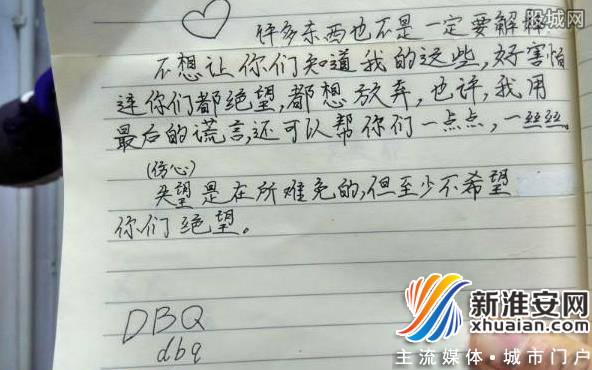 股城网
许多东西也不是一定要解释
不想让你们知道我的这些,好害怕
连你们都绝望,都想放弃,也许,我用
最后的谎言,还可以帮你们一点点,一丝丝。
(伤心)
失望是在所难免的,但至少不希望
你们绝望。
DBQ
dbq
新淮安网
xhuaian.com
主流媒体·城市门户